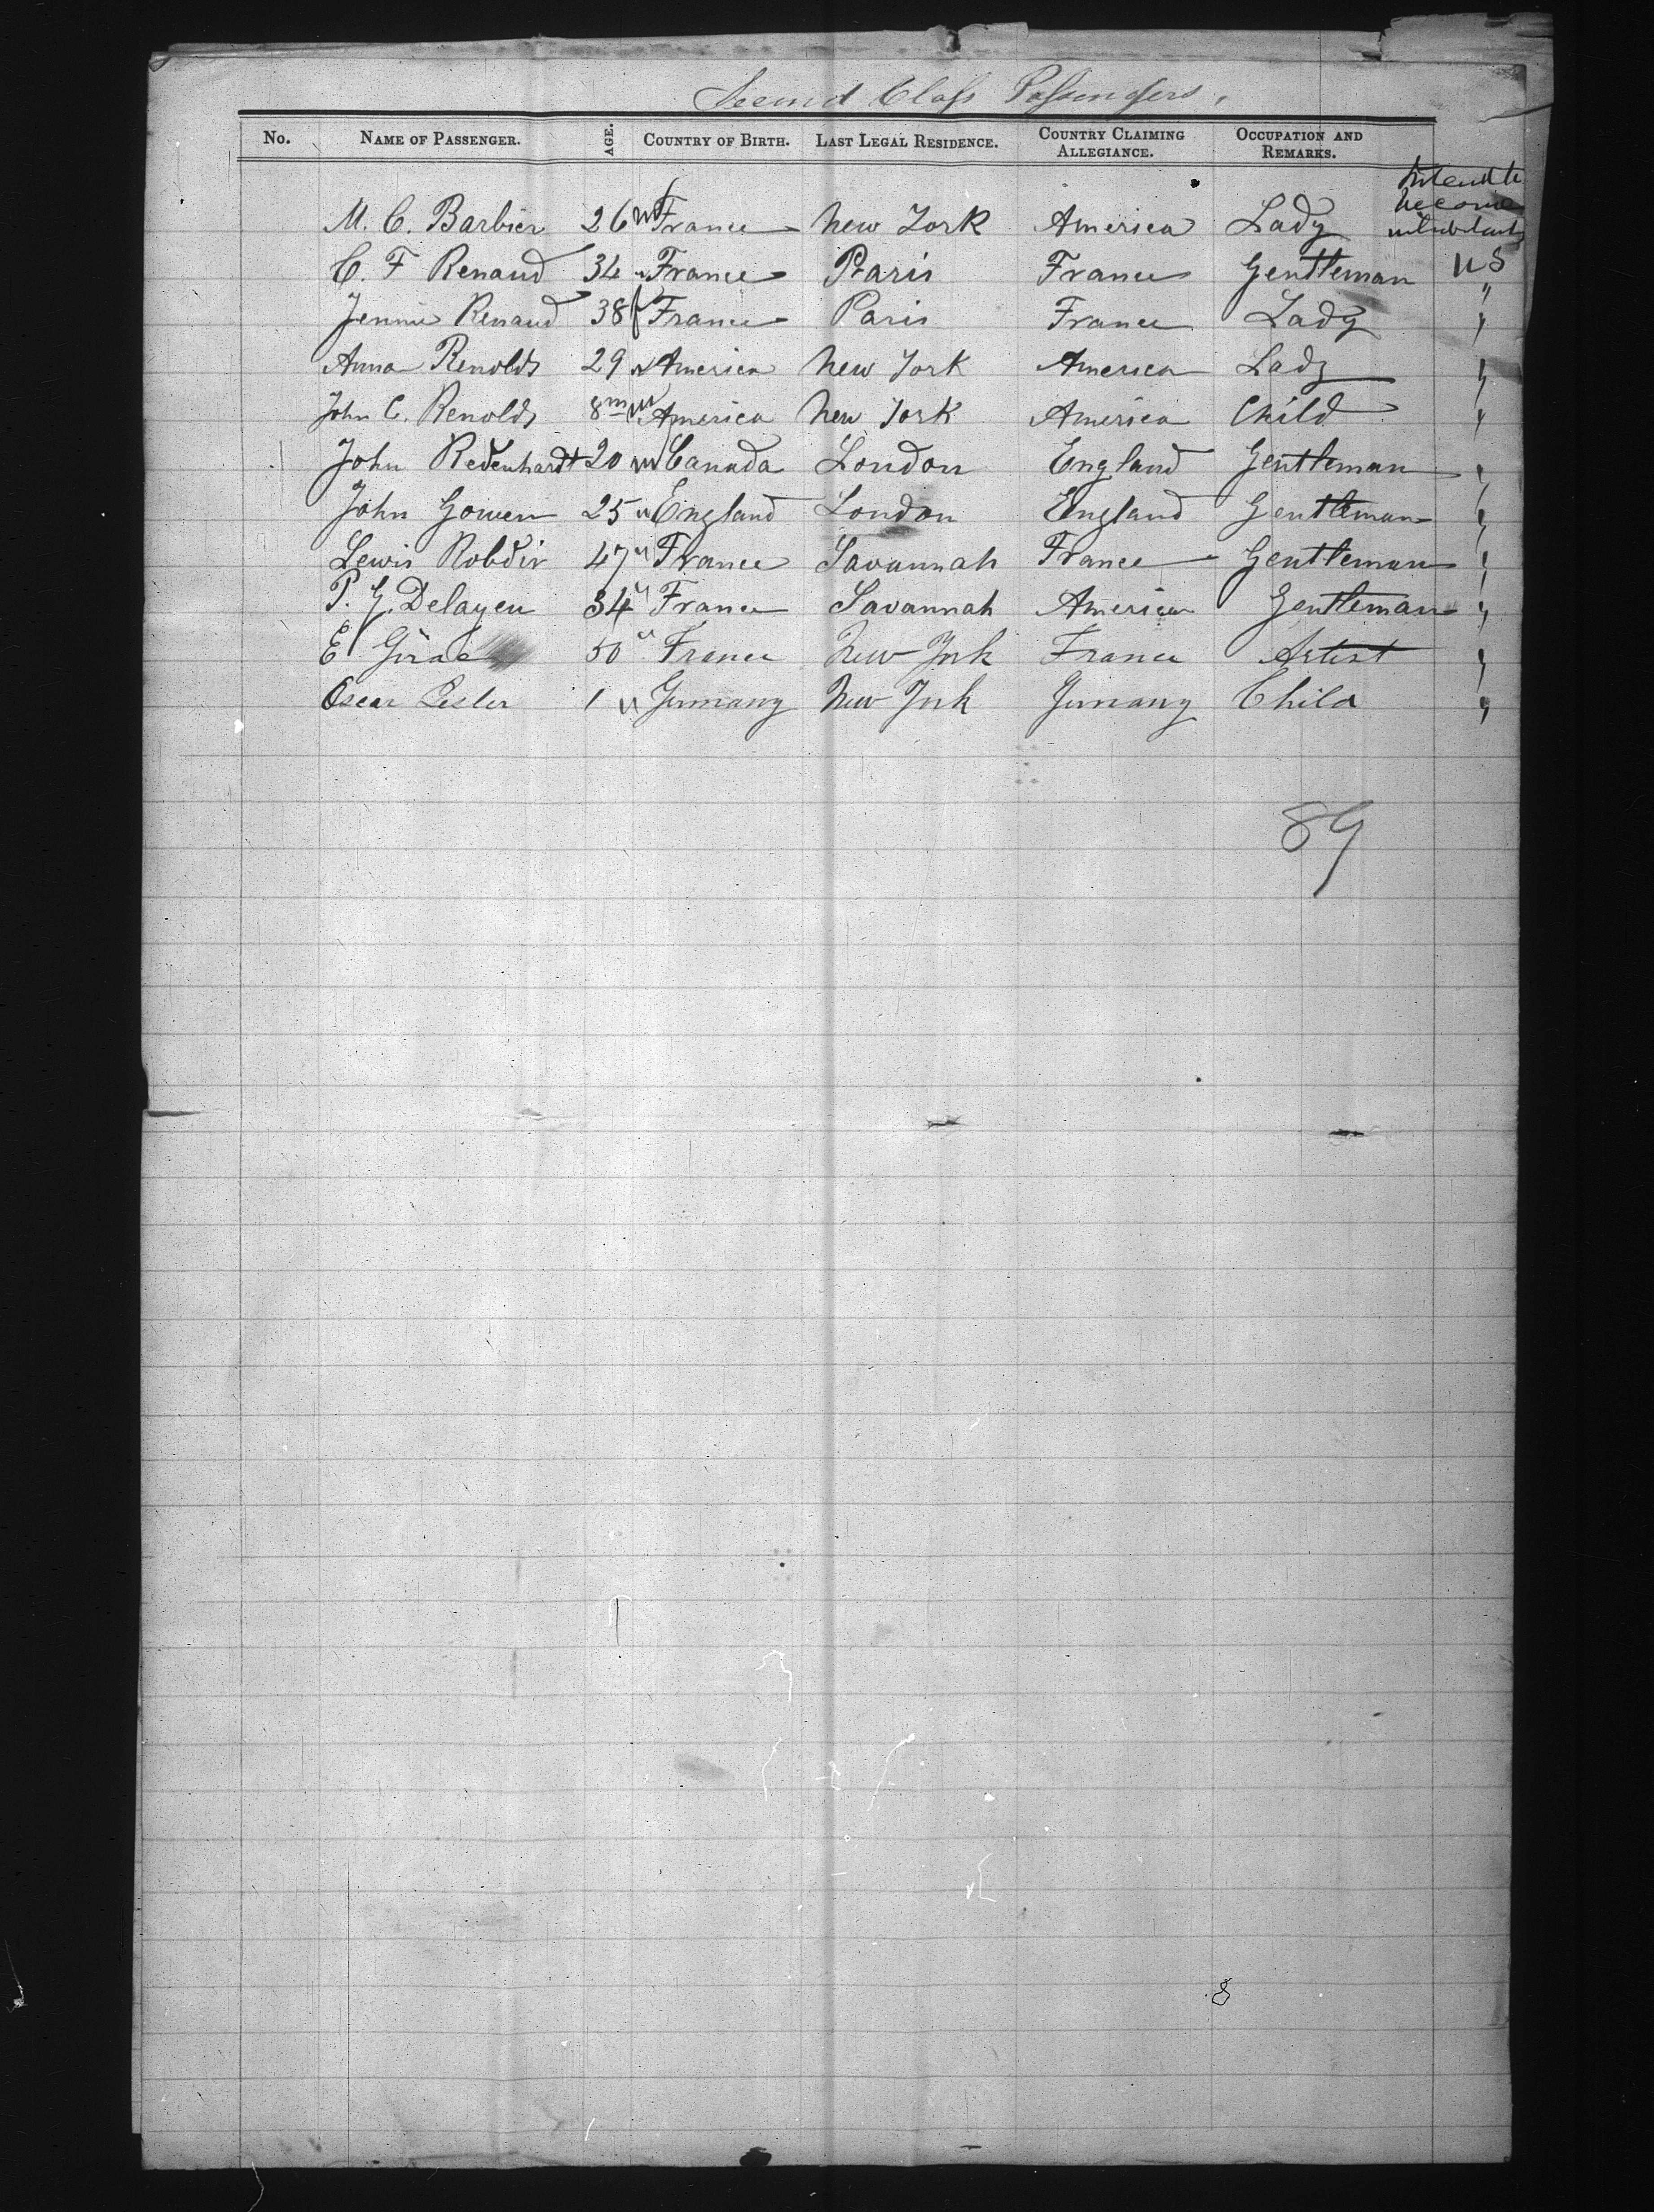 Second Class Passengers.
No. NAME OF PASSENGER. AGE. COUNTRY OF BIRTH. LAST LEGAL RESIDENCE. COUNTRY CLAIMING ALLEGIANCE. OCCUPATION AND REMARKS.
Intend to
become
inhabitants
M. C. Barbier 26 France New York America Lady
C. F Renaud 34 France Paris France Gentleman US
Jennie Renaud 38 f France Paris France Lady "
Anna Renolds 29 America New York America Lady "
John C. Renolds 8m America New York America Child "
John Redenhardt 20 Canada London England Gentleman "
John Gowen 25 England London England Gentleman "
Lewis Robdir 47 France Savannah France Gentleman "
P. G. Delayen 34 France Savannah America Gentleman "
E 50 France New York France Artist "
Oscar Lesler 1 Germany New York Germany Child "
89
8